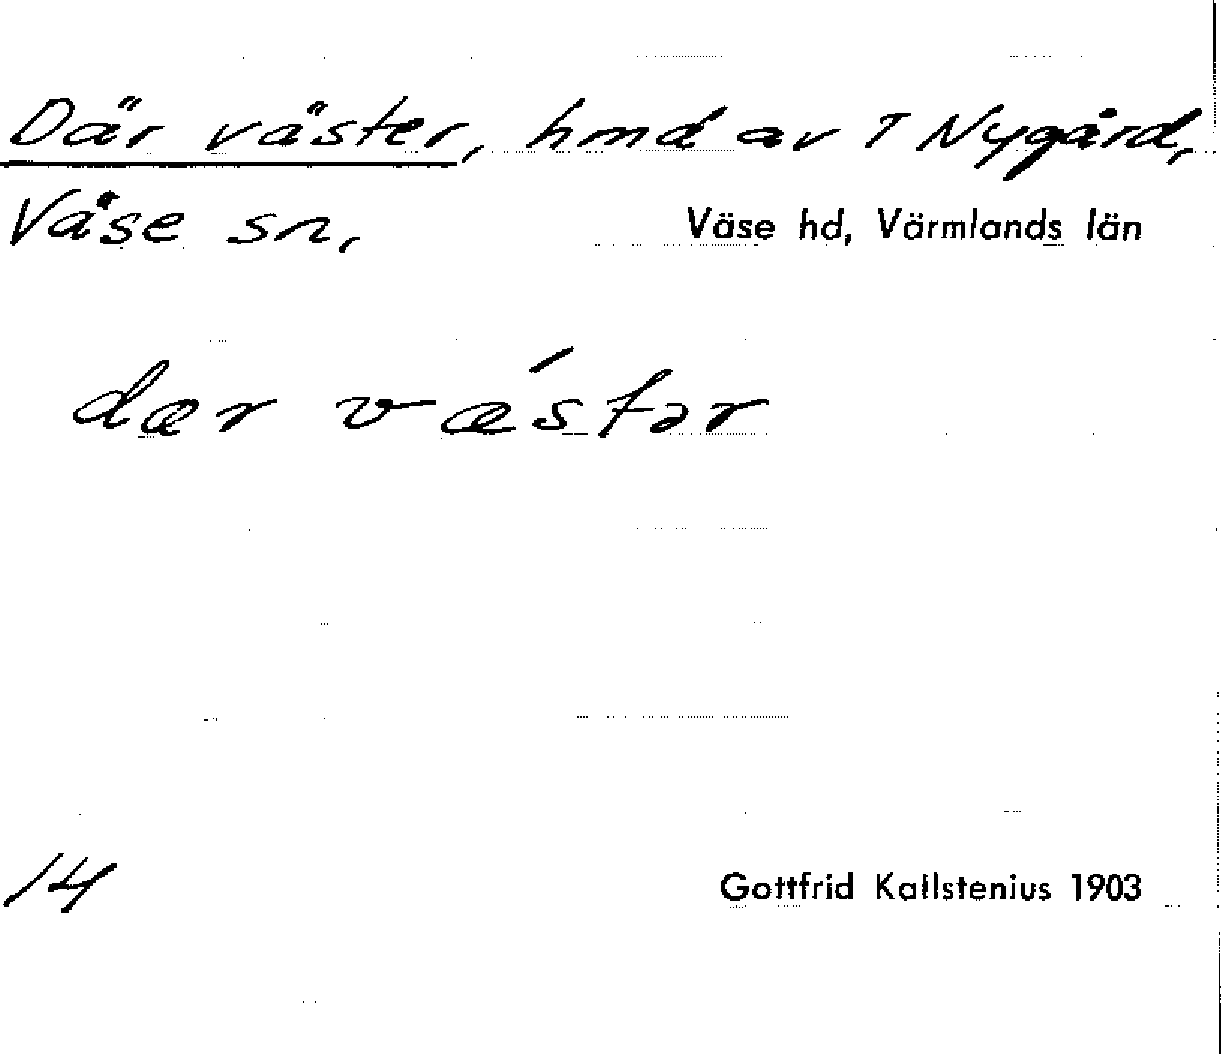 Där väster, hmd av 7 Nygård,
Väse sn, Väse hd, Värmlands län
dær vǽstər
14 Gottfrid Kallstenius 1903